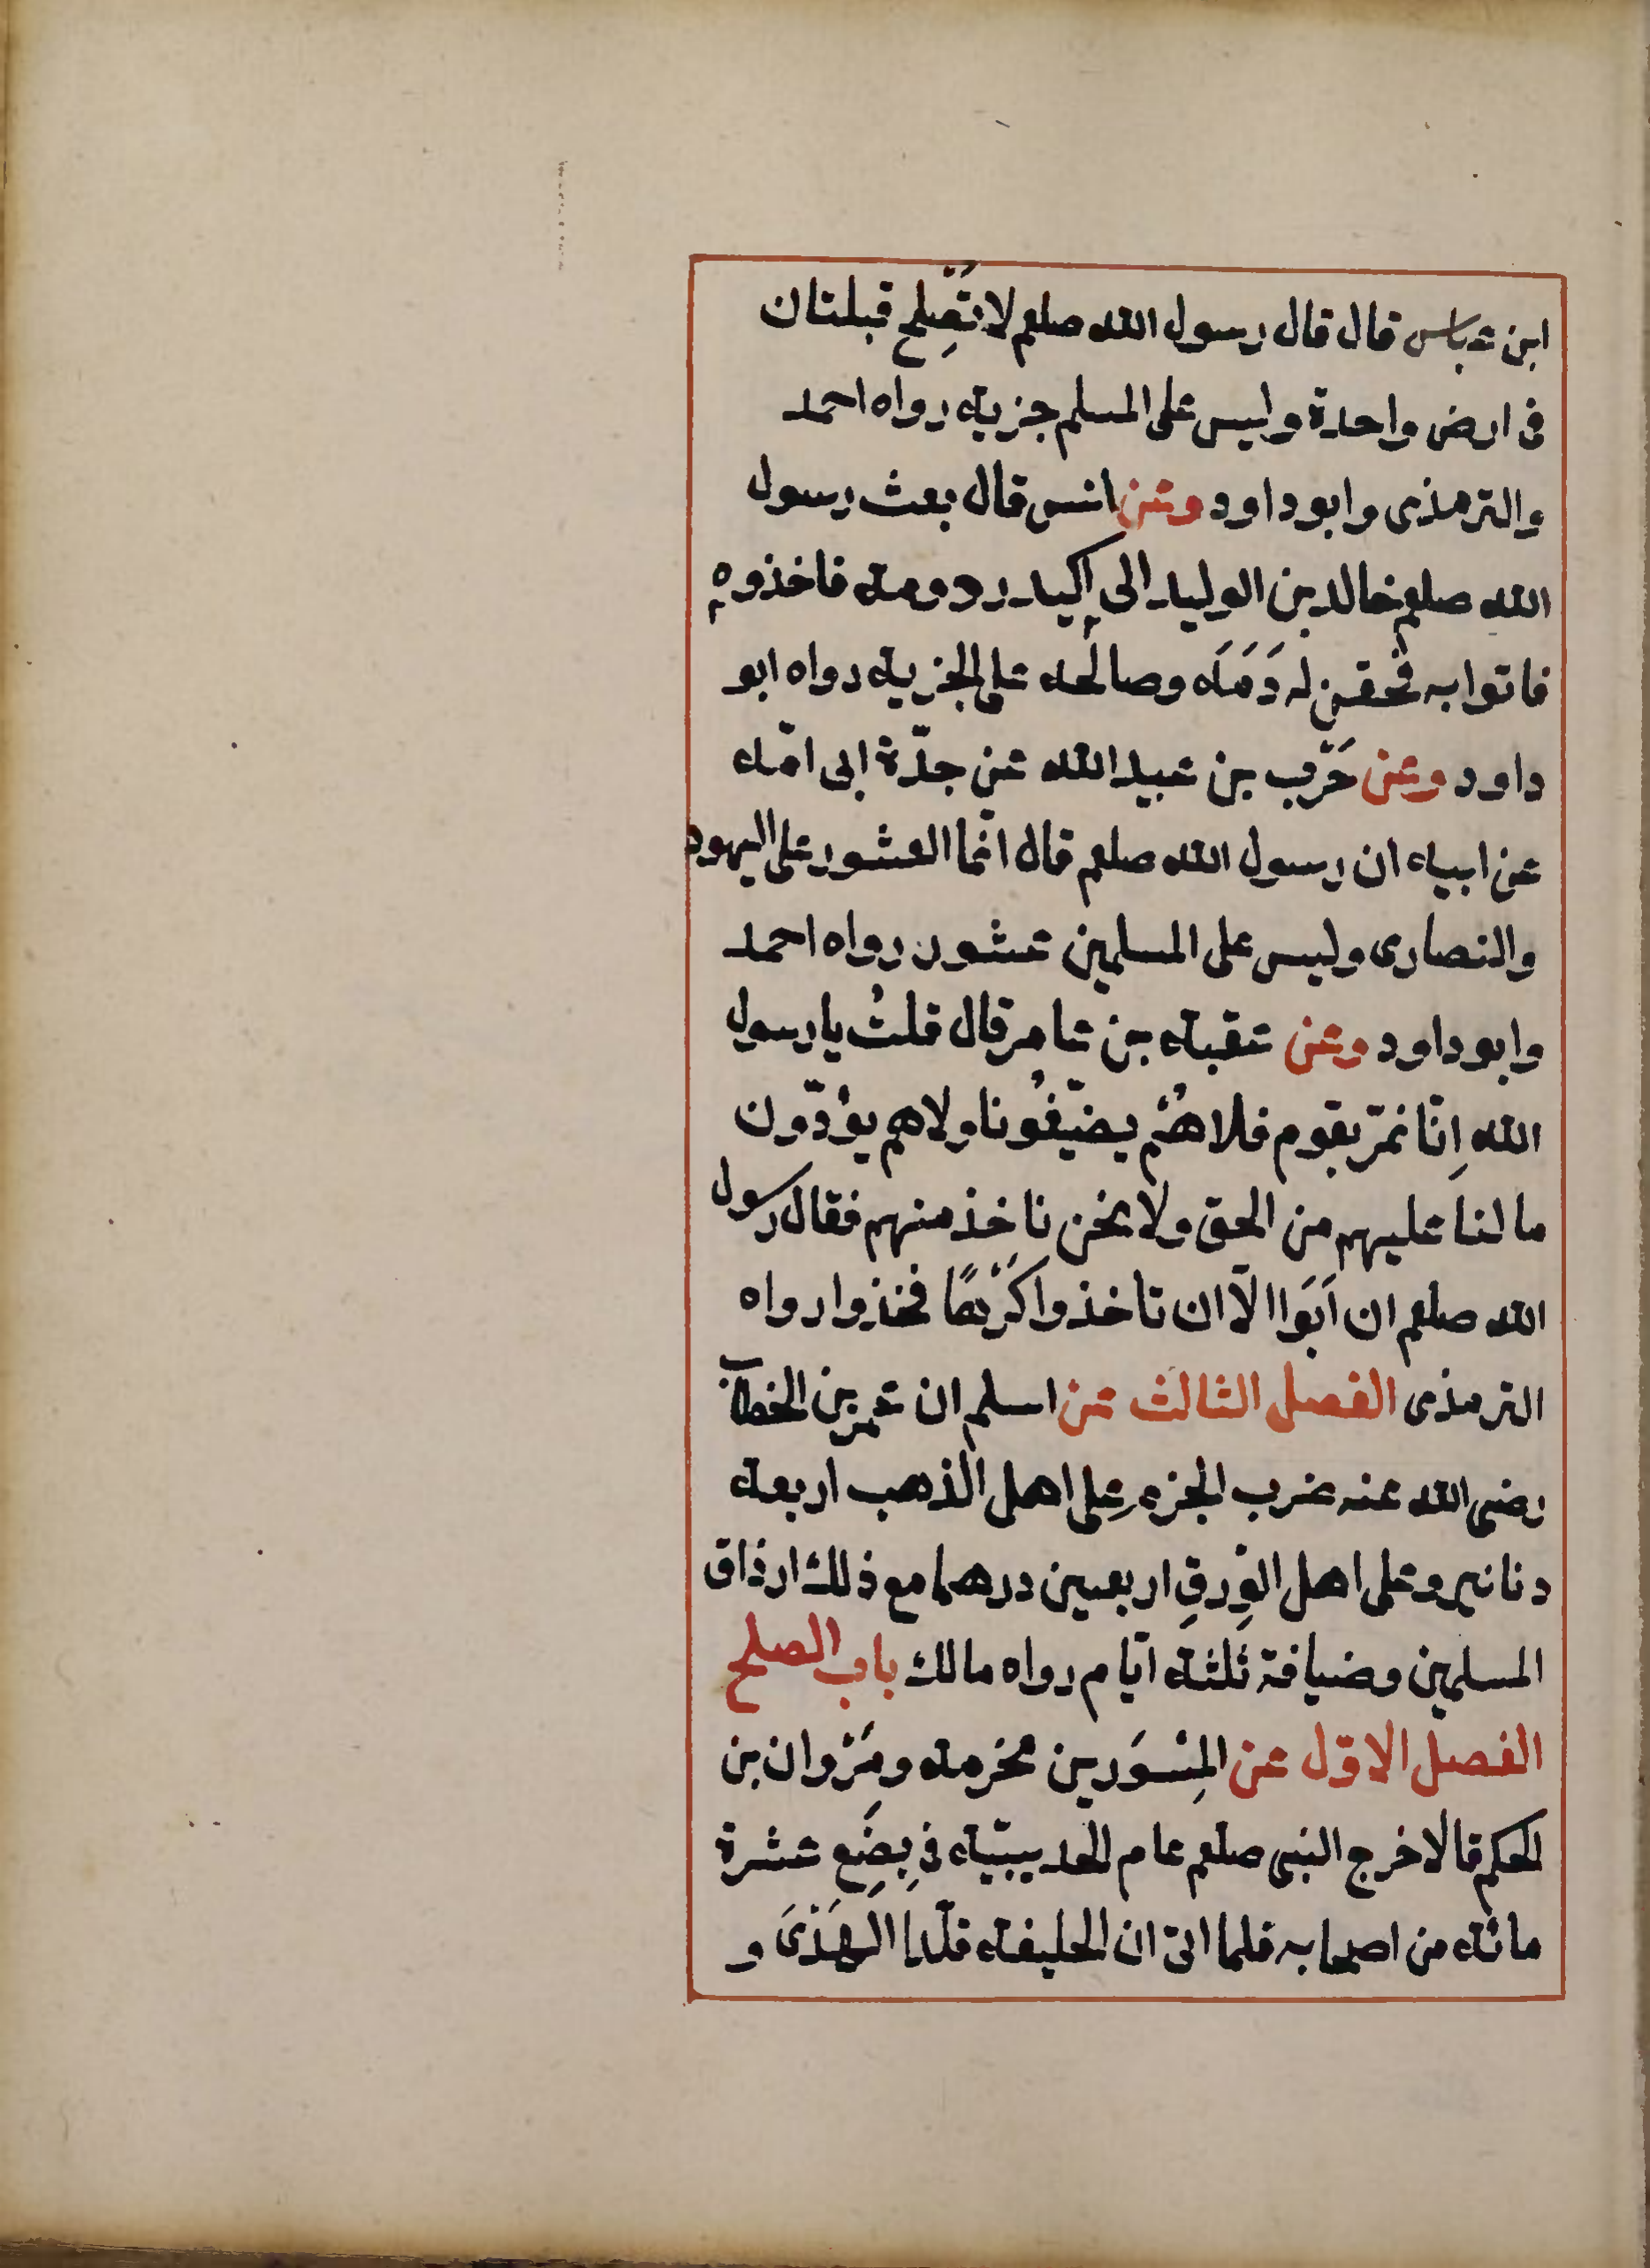 ابن عباس قال قال رسول الله صلعم لا تَصْلح قبلتان
فى ارض واحدة وليس على المسلم جزية رواه احمد
والترمذى وابو داود وعن انس قال بعث رسول
الله صلعم خالد بن الوليد الى اكيدر دومة فاخذوه
فاتوا به فحقن له دَمَهَ وصالحه على الجزية رواه ابو
داود وعن حَرْب بن عبيد الله عن جدّة ابى امّه
عن ابيه ان رسول الله صلعم قال انّما العشور على اليهود
والنصارى وليس على المسلمين عشور رواه احمد
وابو داود وعن عقبة بن عامر قال قلتُ يا رسول
الله اِنّا نمرّ بقوم فلا هُمْ يضيّفُونا ولا هم يؤدّون
ما لنا عليهم من الحق ولا نحن ناخذ منهم فقال رسول
الله صلعم ان اَبَوا الّا ان تاخذوا كَرْهًا فخذوا رواه
الترمذى الفصل الثالث عن اسلم ان عمر بن الخطاب
رضى الله عنه ضرب الجزية على اهل الذهب اربعة
دنانير وعلى اهل الوِرقِ اربعين درهما مع ذلك ارزاق
المسلمين وضيافة ثلثة ايّام رواه مالك باب الصلح
الفصل الاوّل عن المِسْوَر بن مخرمة ومَرْوان بن
الحكم قالا خرج النبى صلعم عام الحديبيّة فى بِضْعِ عشرة
مائة من اصحابه فلما اتى ان الحليفة قلّد الهَدْىَ و